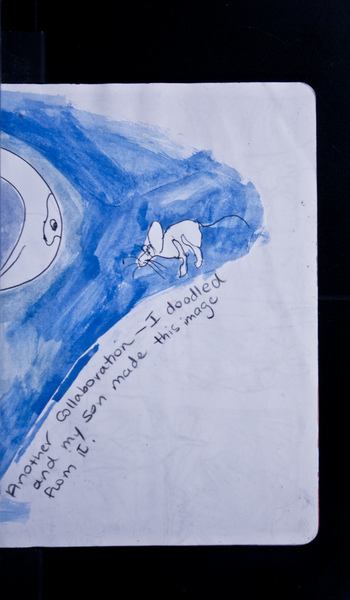 Another Collaboration—I doodled
and my son made this image
from it.